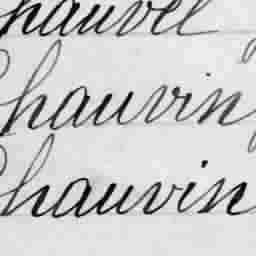 hauvel
Chauvin
Chauvin